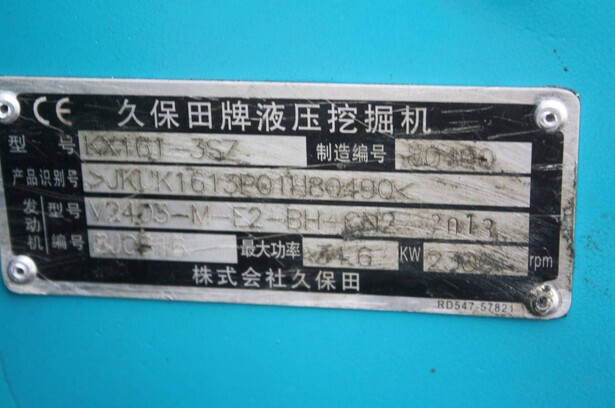 CE 久保田牌液压挖掘机
型号 KX161-3SZ 制造编号 80490
产品识别号 >JKUK1613P01H80490<
发动机 型号 V2403-M-E2-BH-CN2 2013
编号 最大功率 KW rpm
株式会社久保田
RD547-57821